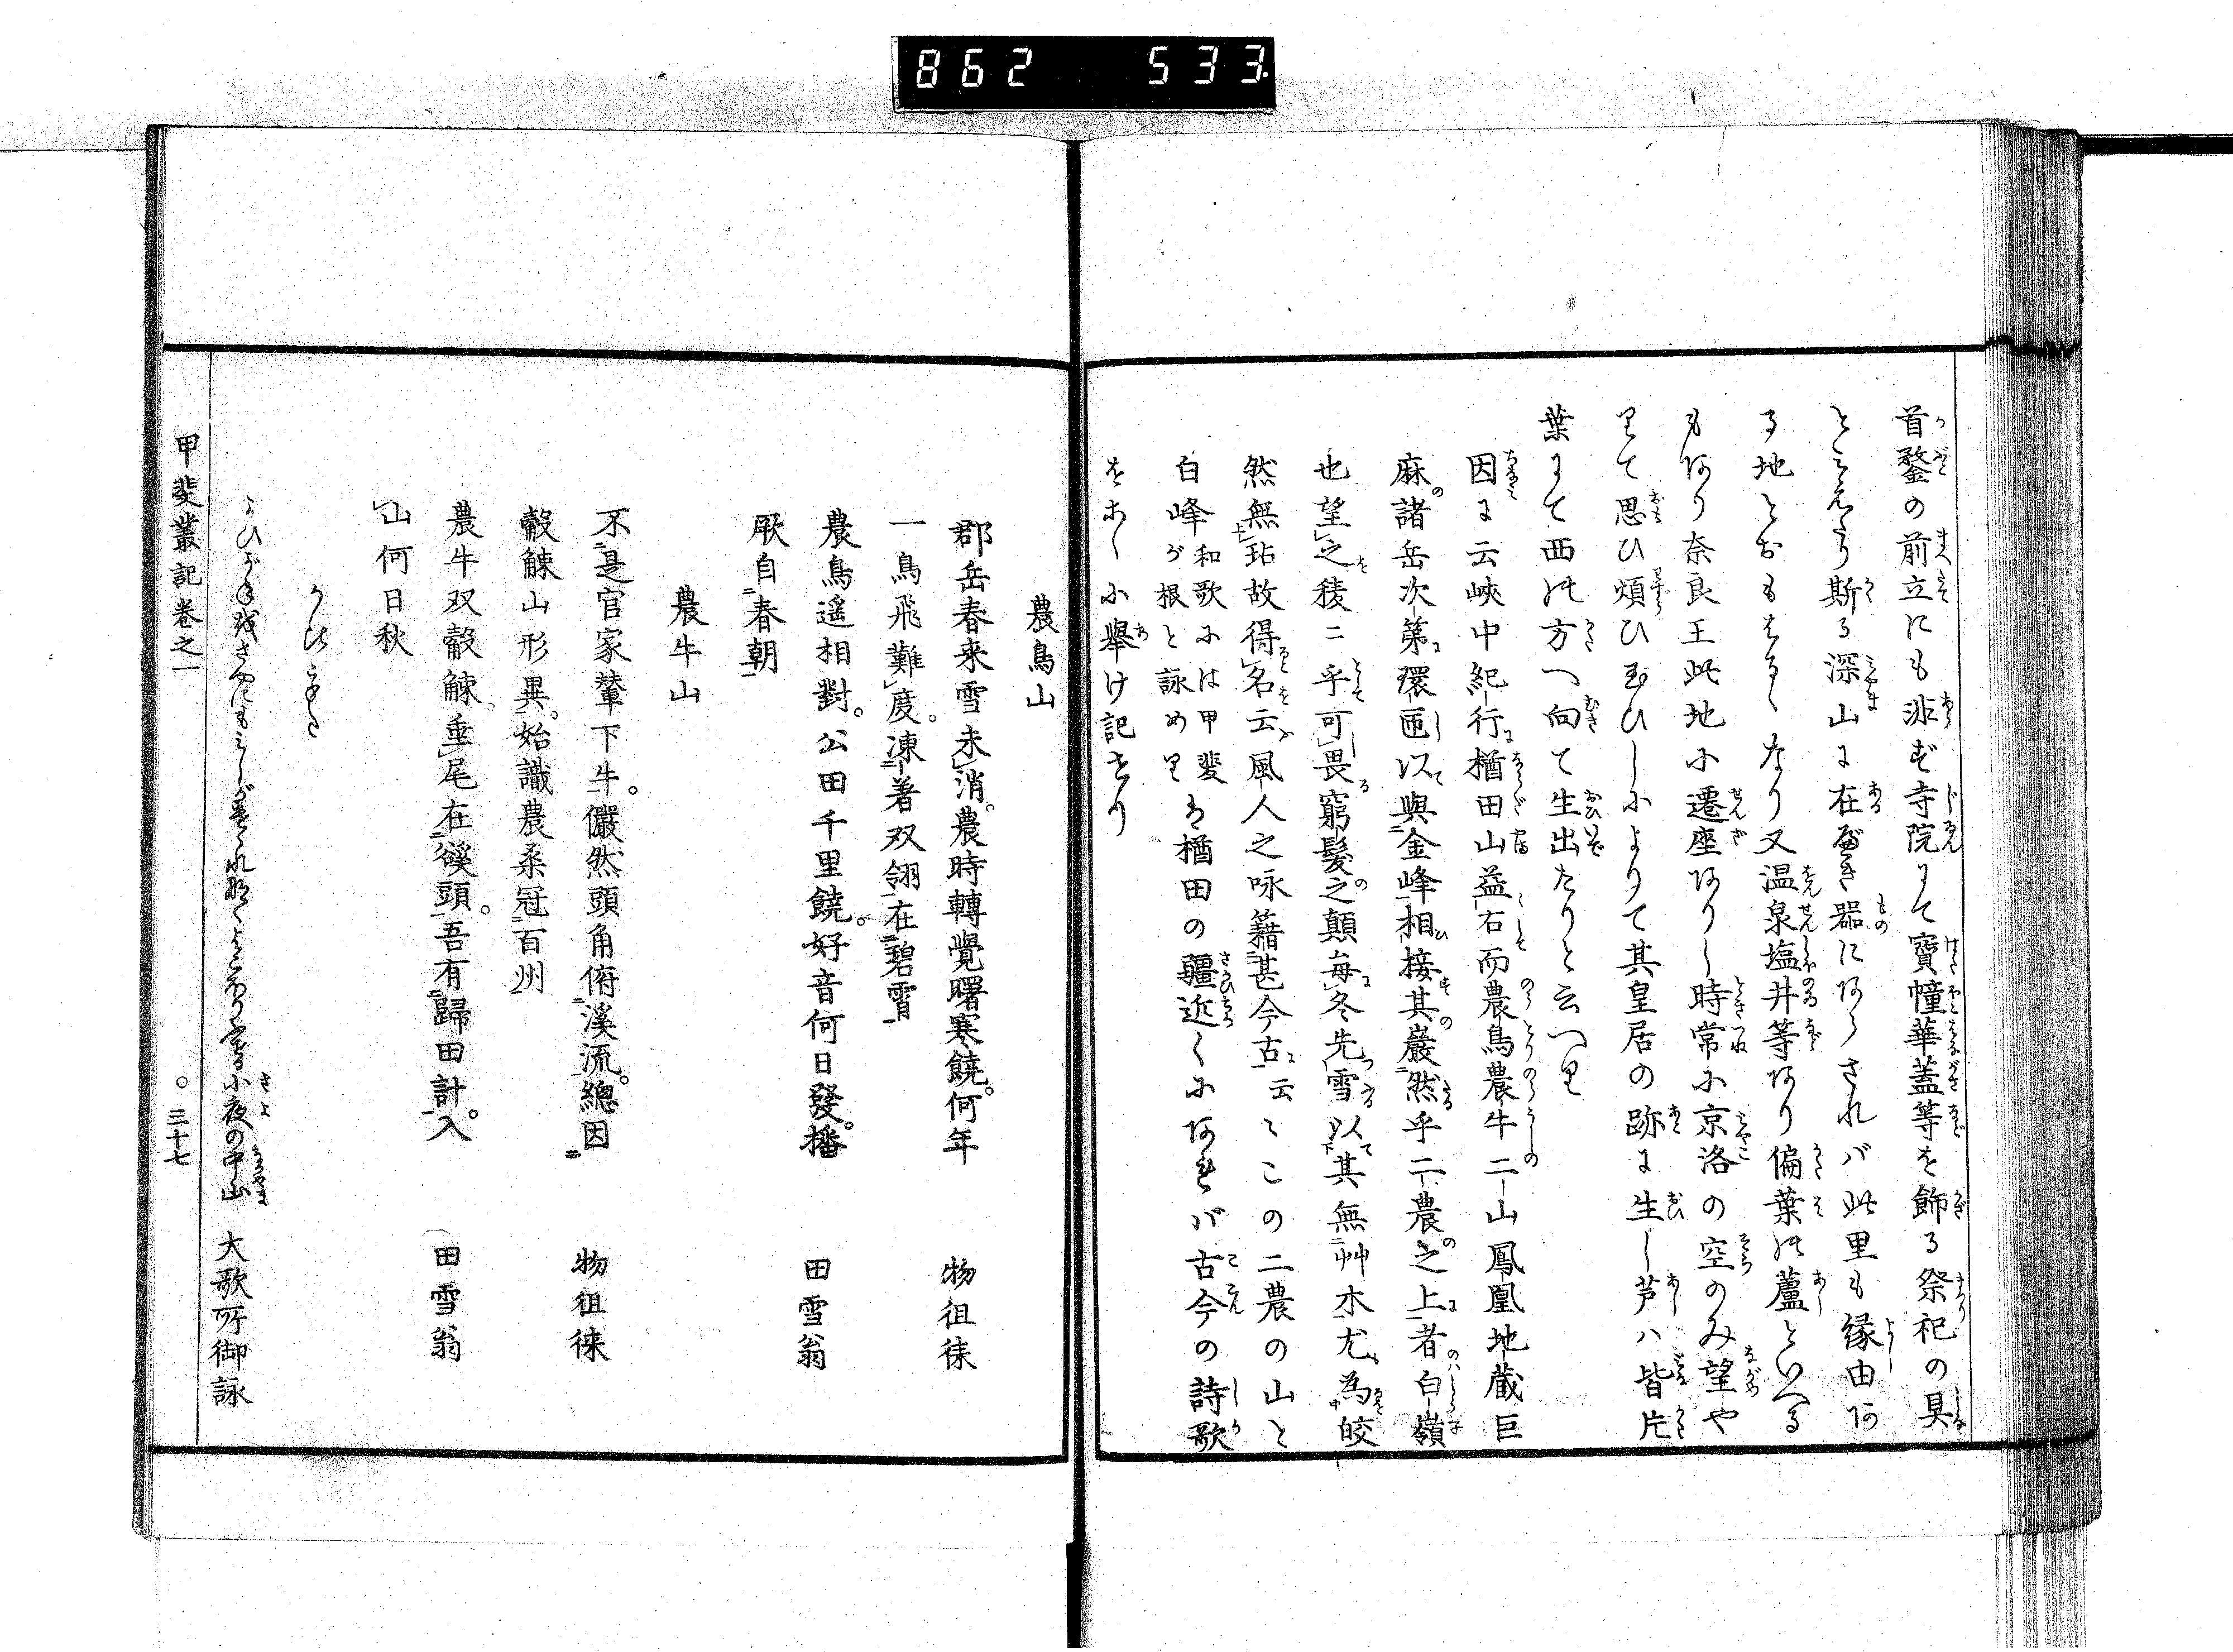 862 533
首鍪の前立にも非ず寺院にて寶幢華蓋等を飾る祭祀の具
とみえたり斯る深山に在べき器にあらされバ此里も縁由あ
る地とおもはるゝなり又温泉塩井等あり偏葉の蘆といへる
もあり奈良王此地に遷座ありし時常に京洛の空のみ望や
りて思ひ煩ひ玉ひしによりて其皇居の跡に生し芦ハ皆片
葉にて西の方へ向て生出たりと云へり
因に云峽中紀行楢田山益右而農鳥農牛二山鳳凰地蔵巨
麻諸岳次第環匝以與金峰相接其巖然乎二農之上者白嶺
也望之稜〻乎可畏窮髮之顛毎冬先雪以其無艸木尤為皎
然無玷故得名云風人之咏籍甚今古云〻この二農の山と
白峰和歌には甲斐が根と詠めりは楢田の疆近くにあれバ古今の詩歌
をこゝに舉け記せり
農鳥山
郡岳春来雪未消農時轉覺曙寒饒何年 物徂徠
一鳥飛難度凍著双翎在碧霄
農鳥遥相對公田千里饒好音何日發播 田雪翁
厥自春朝
農牛山
不是官家輦下牛儼然頭角俯溪流總因 物徂徠
觳觫山形異始識農桑冠百州
農牛双觳觫垂尾在谿頭吾有歸田計入 田雪翁
山何日秋
かひうた
かひがねをさやにもみしがけゝれなくよこほりふせる小夜の中山 大歌所御詠
甲斐叢記巻之一 〇三十七